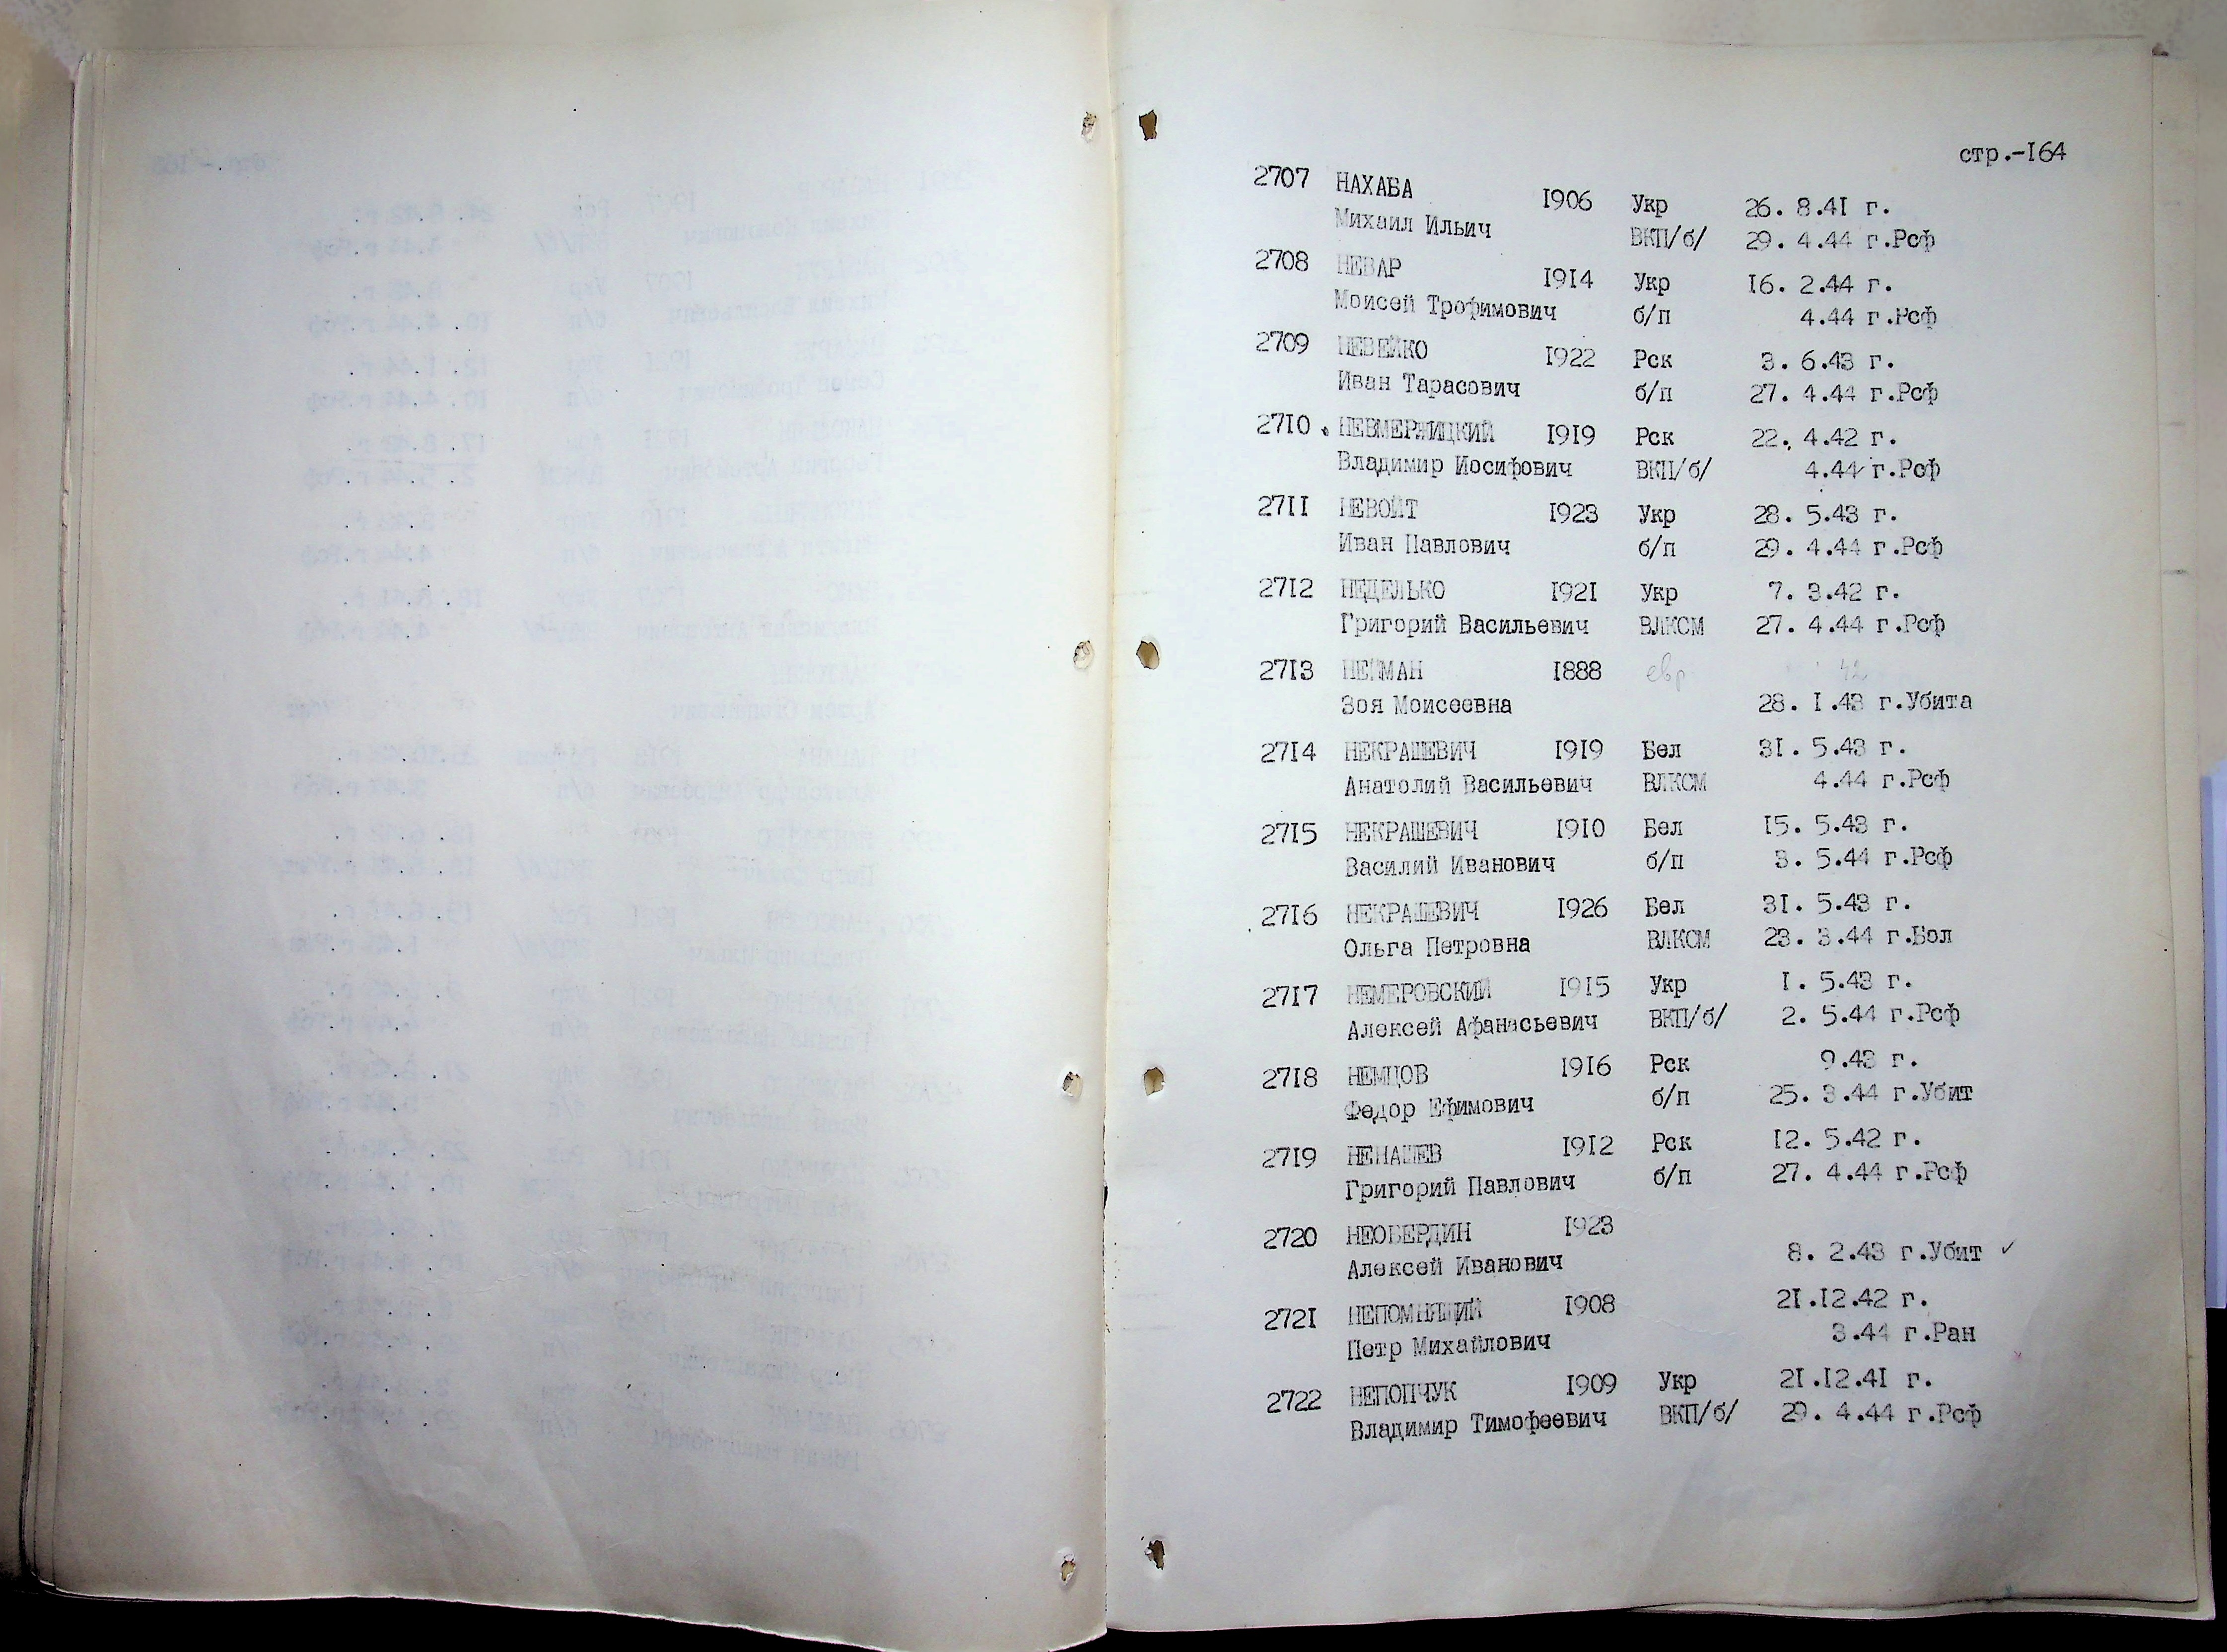 стр.-I64
2707 НАХАБА I906 Укр 26. 8.4I г.
Михаил Ильич ВКП/б/ 29. 4.44 г.Рсф
2708 НЕВАР I9I4 Укр I6. 2.44 г.
Моисей Трофимович б/п 4.44 г.Рсф
2709 НЕВЕЙКО I922 Рск 3. 6.43 г.
Иван Тарасович б/п 27. 4.44 г.Рсф
27I0 НЕВМЕРЖИЦКИЙ I9I9 Рск 22. 4.42 г.
Владимир Иосифович ВКП/б/ 4.44 г.Рсф
27II НЕВОЙТ I923 Укр 28. 5.43 г.
Иван Павлович б/п 29. 4.44 г.Рсф
27I2 НЕДЕЛЬКО I92I Укр 7. 3.42 г.
Григорий Васильевич ВЛКСМ 27. 4.44 г.Рсф
27I3 НЕЙМАН I888 евр. 42
Зоя Моисеевна 28. I.43 г.Убита
27I4 НЕКРАШЕВИЧ I9I9 Бел 3I. 5.43 г.
Анатолий Васильевич ВЛКСМ 4.44 г.Рсф
27I5 НЕКРАШЕВИЧ I9I0 Бел I5. 5.43 г.
Василий Иванович б/п 3. 5.44 г.Рсф
27I6 НЕКРАШЕВИЧ I926 Бел 3I. 5.43 г.
Ольга Петровна ВЛКСМ 23. 3.44 г.Бол
27I7 НЕМЕРОВСКИЙ I9I5 Укр I. 5.43 г.
Алексей Афанасьевич ВКП/б/ 2. 5.44 г.Рсф
27I8 НЕМЦОВ I9I6 Рск 9.43 г.
Федор Ефимович б/п 25. 3.44 г.Убит
27I9 НЕНАШЕВ I9I2 Рск I2. 5.42 г.
Григорий Павлович б/п 27. 4.44 г.Рсф
2720 НЕОБЕРДИН I923
Алексей Иванович 8. 2.43 г.Убит ✓
272I НЕПОМНЯЩИЙ I908 2I.I2.42 г.
Петр Михайлович 3.44 г.Ран
2722 НЕПОПЧУК I909 Укр 2I.I2.4I г.
Владимир Тимофеевич ВКП/б/ 29. 4.44 г.Рсф